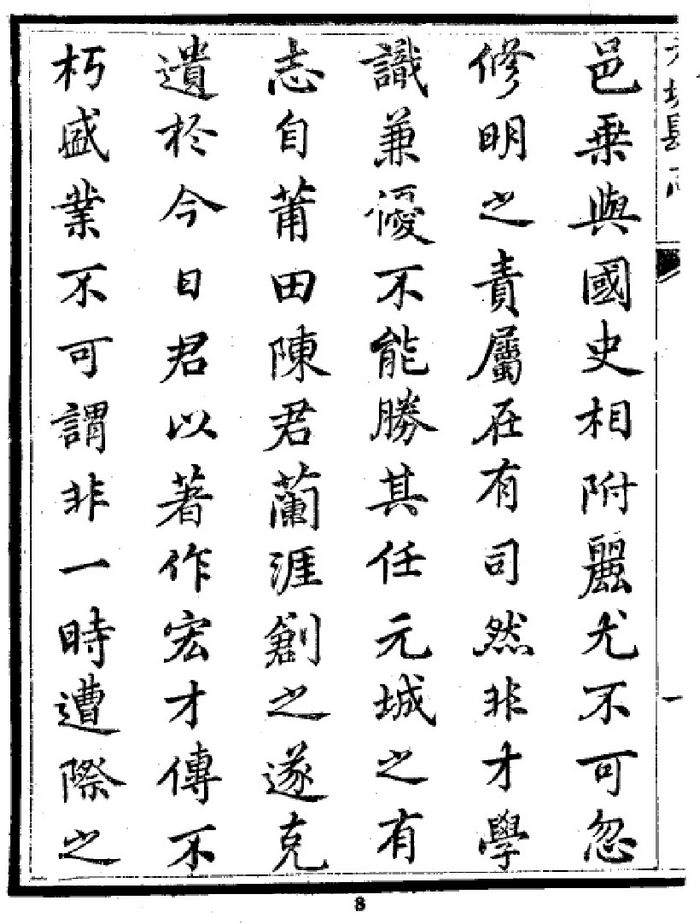 邑乗與國史相附麗尤不可忽
修明之責屬在有司然非才學
識兼優不能勝其任元城之有
志自莆田陳君蘭涯創之遂克
遺於今日君以著作宏才傳不
朽盛業不可謂非一時遭際之
一
8